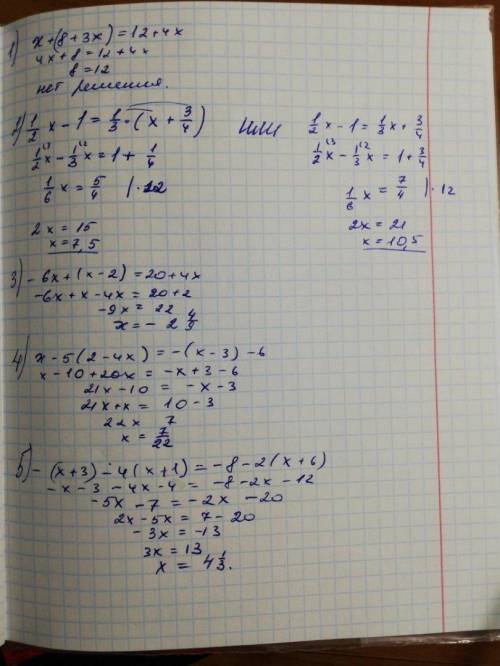 1) x+(8+3x)=12+4x
4x+8=12+4x
8=12
нет решения.
2) 1/2 x-1=1/3·(x+3/4) или 1/2 x-1=1/3 x+3/4
1/2 x-1/3 x=1+1/4 1/2 x-1/3 x=1+3/4
1/6 x=5/4 |·12 1/6 x=7/4 |·12
2x=15 2x=21
x=7,5 x=10,5
3) -6x+(x-2)=20+4x
-6x+x-4x=20+2
-9x=22
x=-2 4/9
4) x-5(2-4x)=-(x-3)-6
x-10+20x=-x+3-6
21x-10=-x-3
21x+x=10-3
22x 7
x=7/22
5) -(x+3)-4(x+1)=-8-2(x+6)
-x-3-4x-4=-8-2x-12
-5x-7=-2x-20
2x-5x=7-20
-3x=-13
3x=13
x=4 1/3.